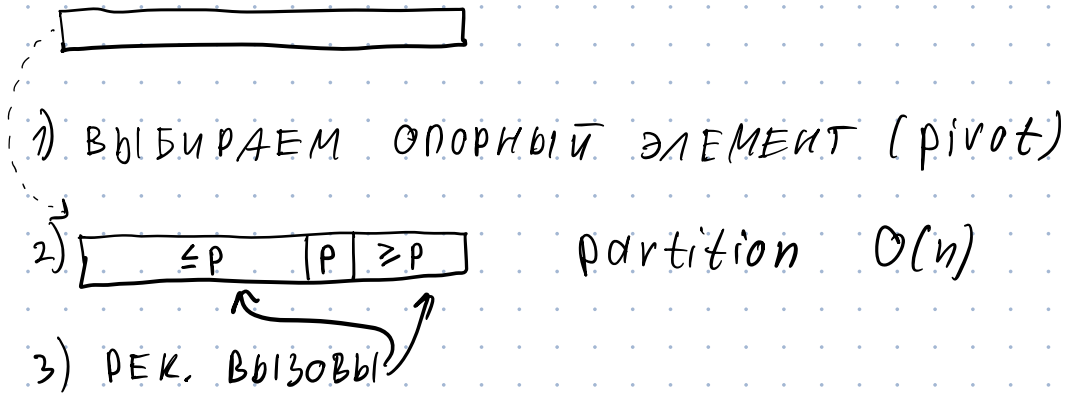 1) ВЫБИРАЕМ ОПОРНЫЙ ЭЛЕМЕНТ (pivot)
2) ≤ p p ≥ p partition O(n)
3) РЕК. ВЫЗОВЫ